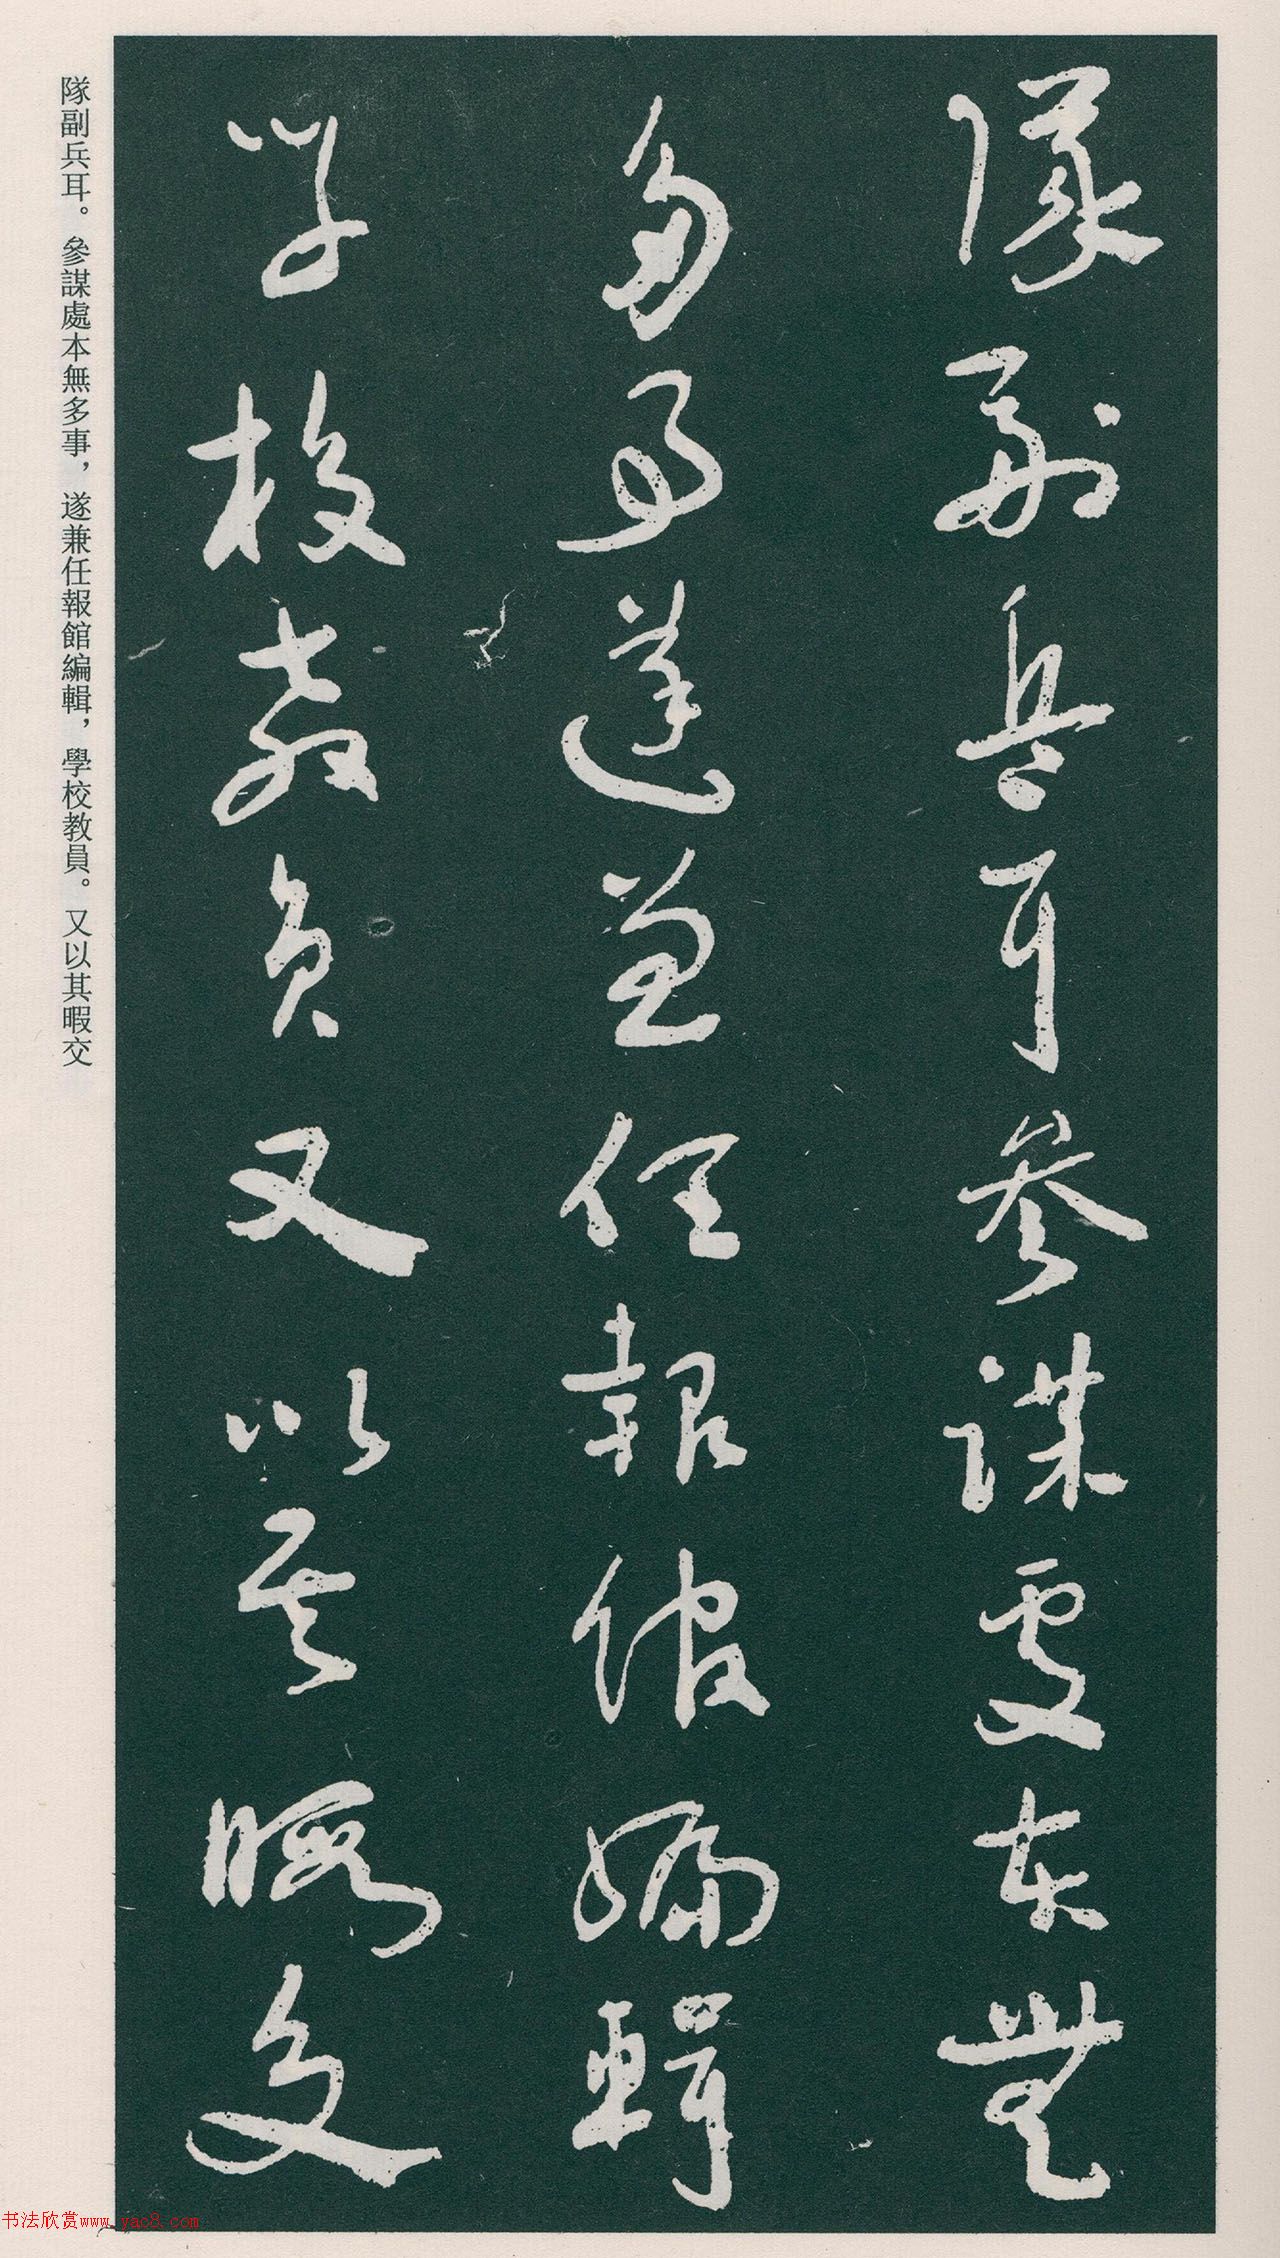 隊副兵耳參謀處本無
多事遂兼任報館編輯
學校教員又以其暇交
隊副兵耳。參謀處本無多事，遂兼任報館編輯，學校教員。又以其暇交
书法欣赏www.yac8.com